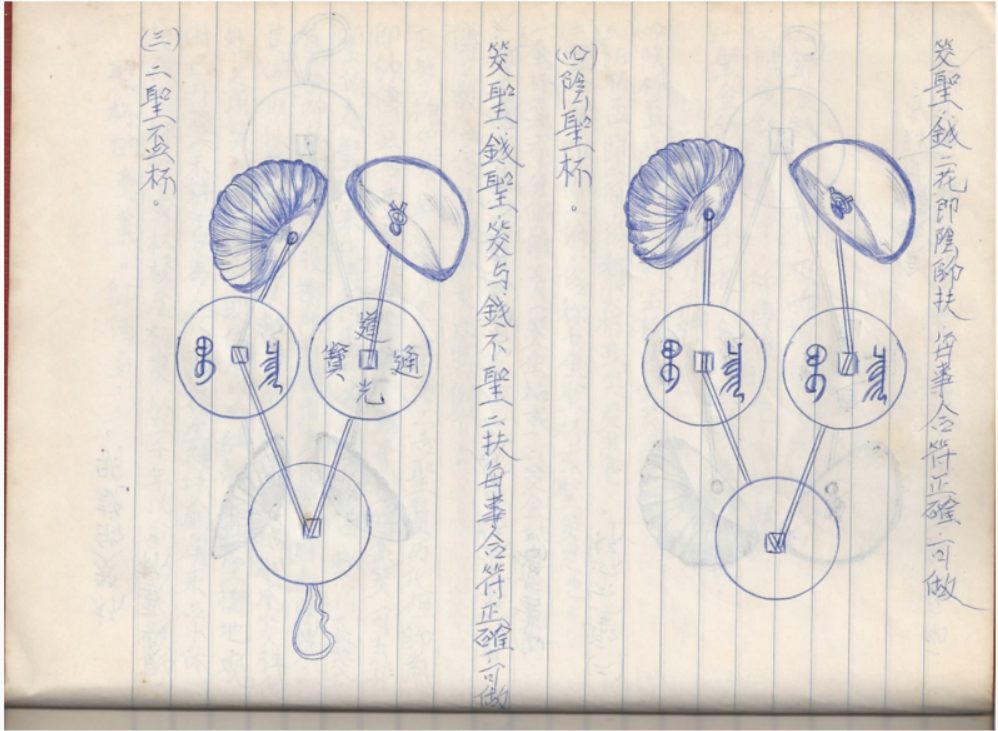 (三)二聖盃杯。
道光通寶
筊聖.錢聖.筊与錢不聖二扶每事合符正確.可做
(四)陰聖杯。
筊聖.錢二花即陰師扶.每事合符正確.可做